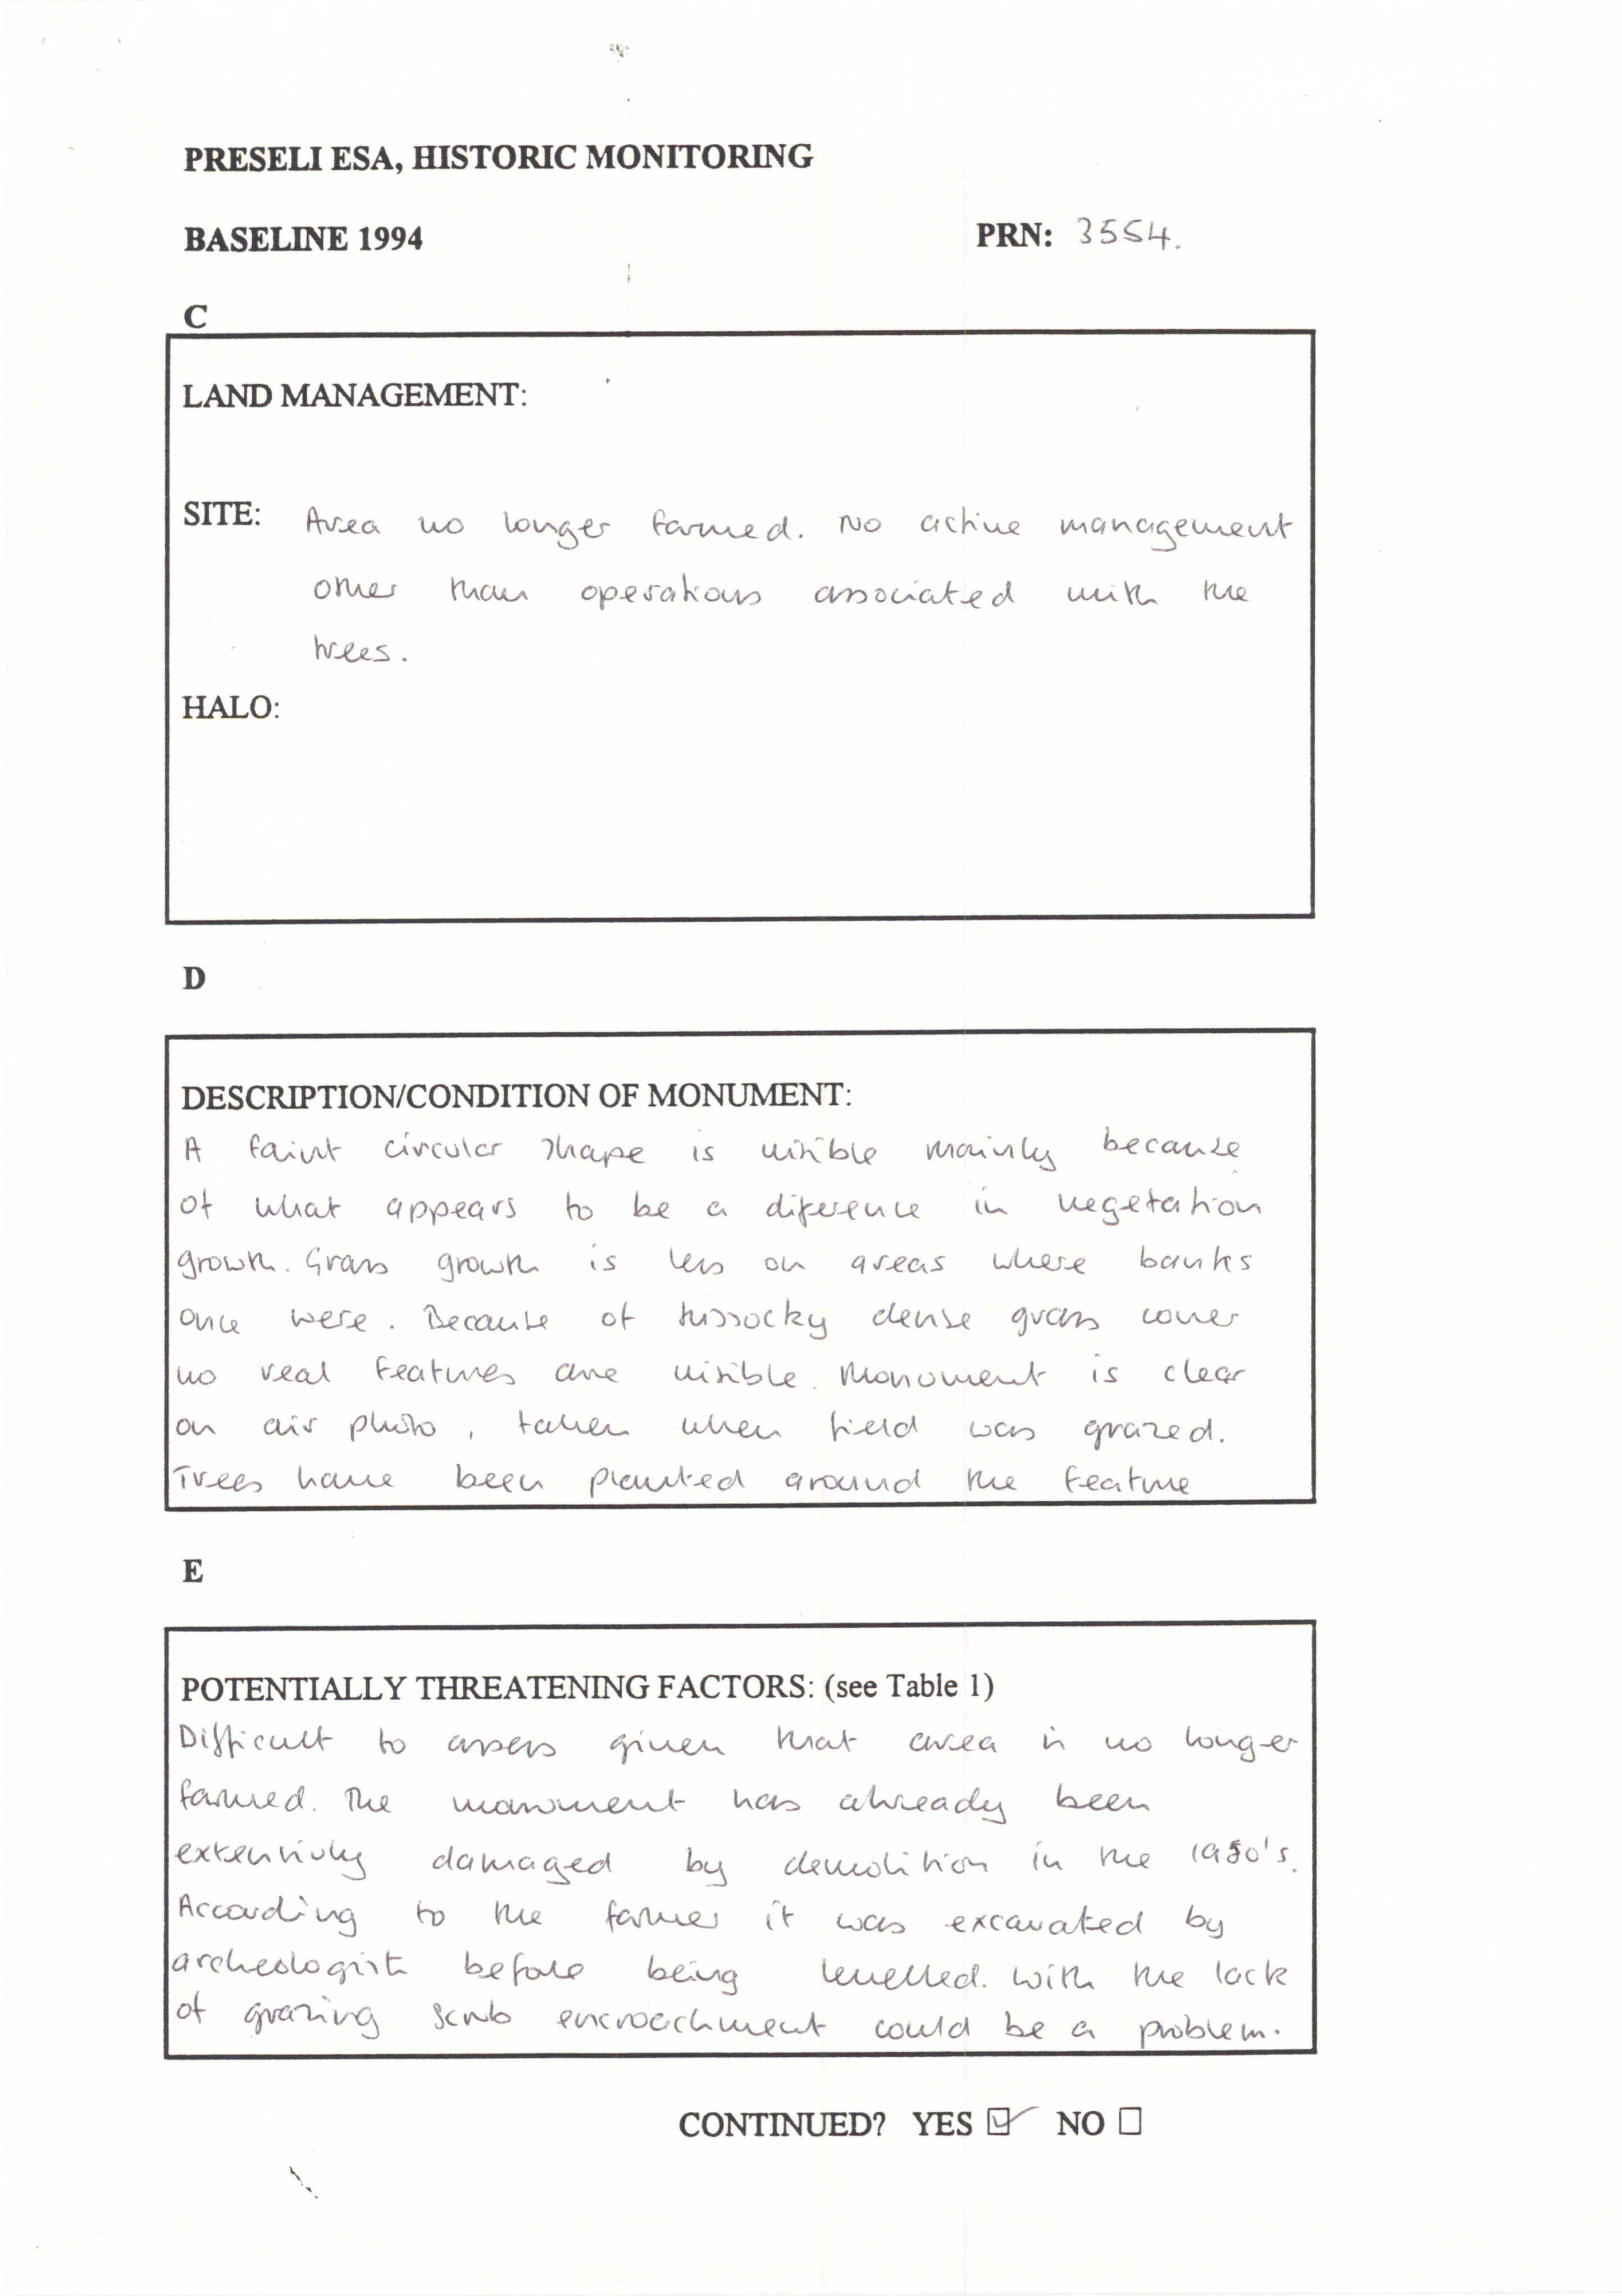 PRESELI ESA, HISTORIC MONITORING
BASELINE 1994 PRN: 3554.
C
LAND MANAGEMENT:
SITE: Area no longer farmed. No active management
other than operations associated with the
trees.
HALO:
D
DESCRIPTION/CONDITION OF MONUMENT:
A faint circular shape is visible mainly because
of what appears to be a diference in vegetation
growth. Grass growth is less on areas where banks
once were. Because of tussocky dense grass cover
no real features are visible. Monument is clear
on air photo, taken when field was grazed.
Trees have been planted around the feature
E
POTENTIALLY THREATENING FACTORS: (see Table 1)
Difficult to assess given that area is no longer
farmed. The monument has already been
extensivly damaged by demolition in the
According to the farmer it was excavated by
archeologist before being levelled. With the lack
of grazing scrub encroachment could be a problem.
CONTINUED? YES ☑ NO ☐